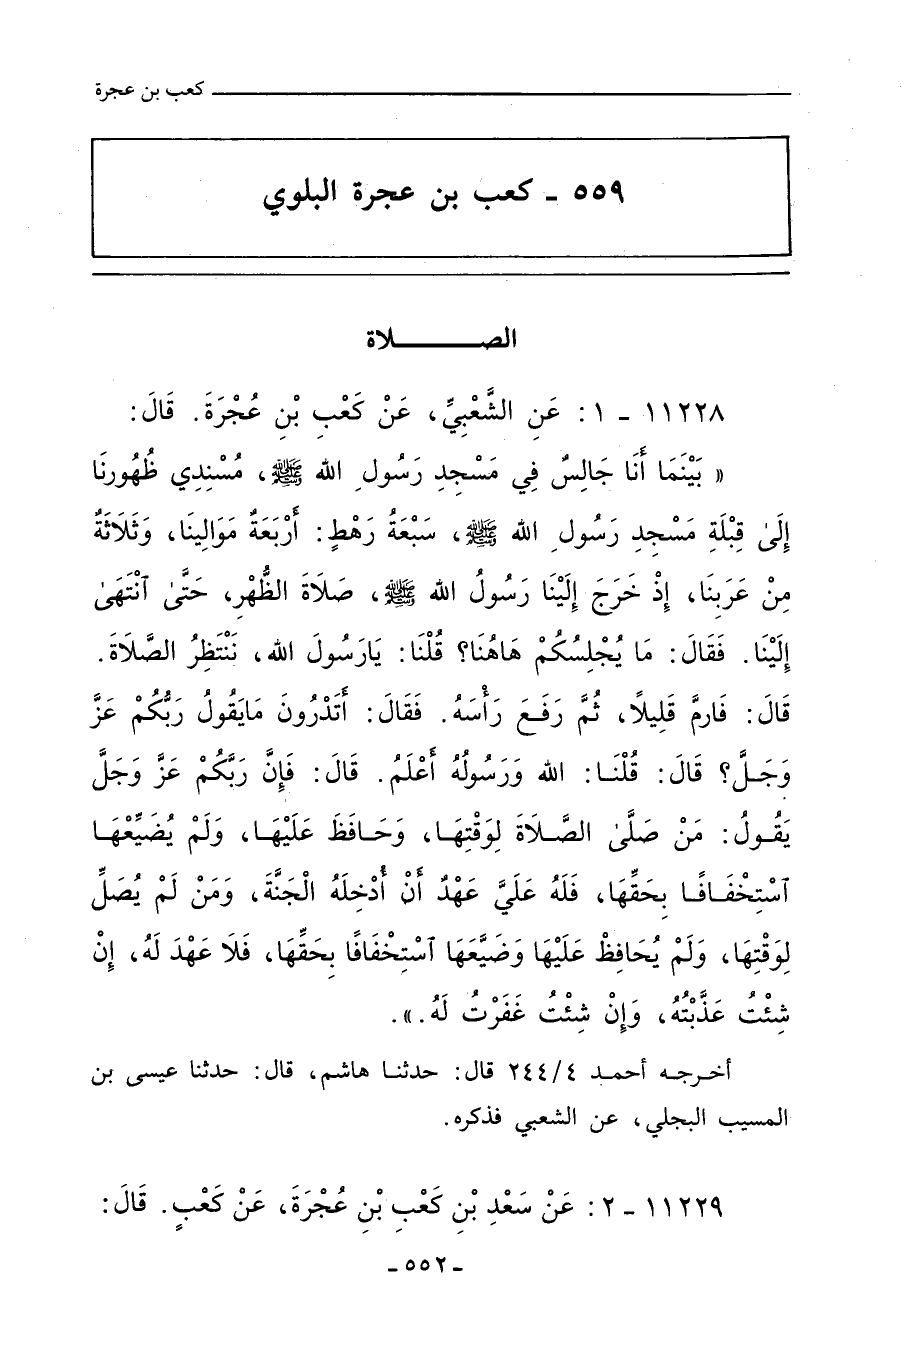 كعب بن عجرة
٥٥٩ - كعب بن عجرة البلوي
الصلاة
١١٢٢٨ - ١ : عَنِ الشَّعْبِيِّ، عَنْ كَعْبِ بْنِ عُجْرَةَ. قَالَ:
« بَيْنَمَا أَنَا جَالِسٌ فِي مَسْجِدِ رَسُولِ الله ﷺ، مُسْنِدِي ظُهُورِنَا
إِلَىٰ قِبْلَةِ مَسْجِدِ رَسُولِ الله ﷺ، سَبْعَةُ رَهْطٍ: أَرْبَعَةٌ مَوَالِينَا، وَثَلَاثَةٌ
مِنْ عَرَبِنَا، إِذْ خَرَجَ إِلَيْنَا رَسُولُ الله ﷺ، صَلَاةَ الظُّهْرِ، حَتَّىٰ ٱنْتَهَىٰ
إِلَيْنَا. فَقَالَ: مَا يُجْلِسُكُمْ هَاهُنَا؟ قُلْنَا: يَارَسُولَ الله، نَنْتَظِرُ الصَّلَاةَ.
قَالَ: فَارمَّ قَلِيلاً، ثُمَّ رَفَعَ رَأْسَهُ. فَقَالَ: أَتَدْرُونَ مَايَقُولُ رَبُّكُمْ عَزَّ
وَجَلَّ؟ قَالَ: قُلْنَا: الله وَرَسُولُهُ أَعْلَمُ. قَالَ: فَإِنَّ رَبَّكُمْ عَزَّ وَجَلَّ
يَقُولُ: مَنْ صَلَّىٰ الصَّلَاةَ لِوَقْتِهَا، وَحَافَظَ عَلَيْهَا، وَلَمْ يُضَيِّعْهَا
ٱسْتِخْفَافًا بِحَقِّهَا، فَلَهُ عَلَيَّ عَهْدٌ أَنْ أُدْخِلَهُ الْجَنَّةَ، وَمَنْ لَمْ يُصَلِّ
لِوَقْتِهَا، وَلَمْ يُحَافِظْ عَلَيْهَا وَضَيَّعَهَا ٱسْتِخْفَافًا بِحَقِّهَا، فَلَا عَهْدَ لَهُ، إِنْ
شِئْتُ عَذَّبْتُهُ، وَإِنْ شِئْتُ غَفَرْتُ لَهُ.».
أخرجه أحمد ٢٤٤/٤ قال: حدثنا هاشم، قال: حدثنا عيسى بن
المسيب البجلي، عن الشعبي فذكره.
١١٢٢٩ - ٢ : عَنْ سَعْدِ بْنِ كَعْبِ بْنِ عُجْرَةَ، عَنْ كَعْبٍ. قَالَ:
- ٥٥٢ -